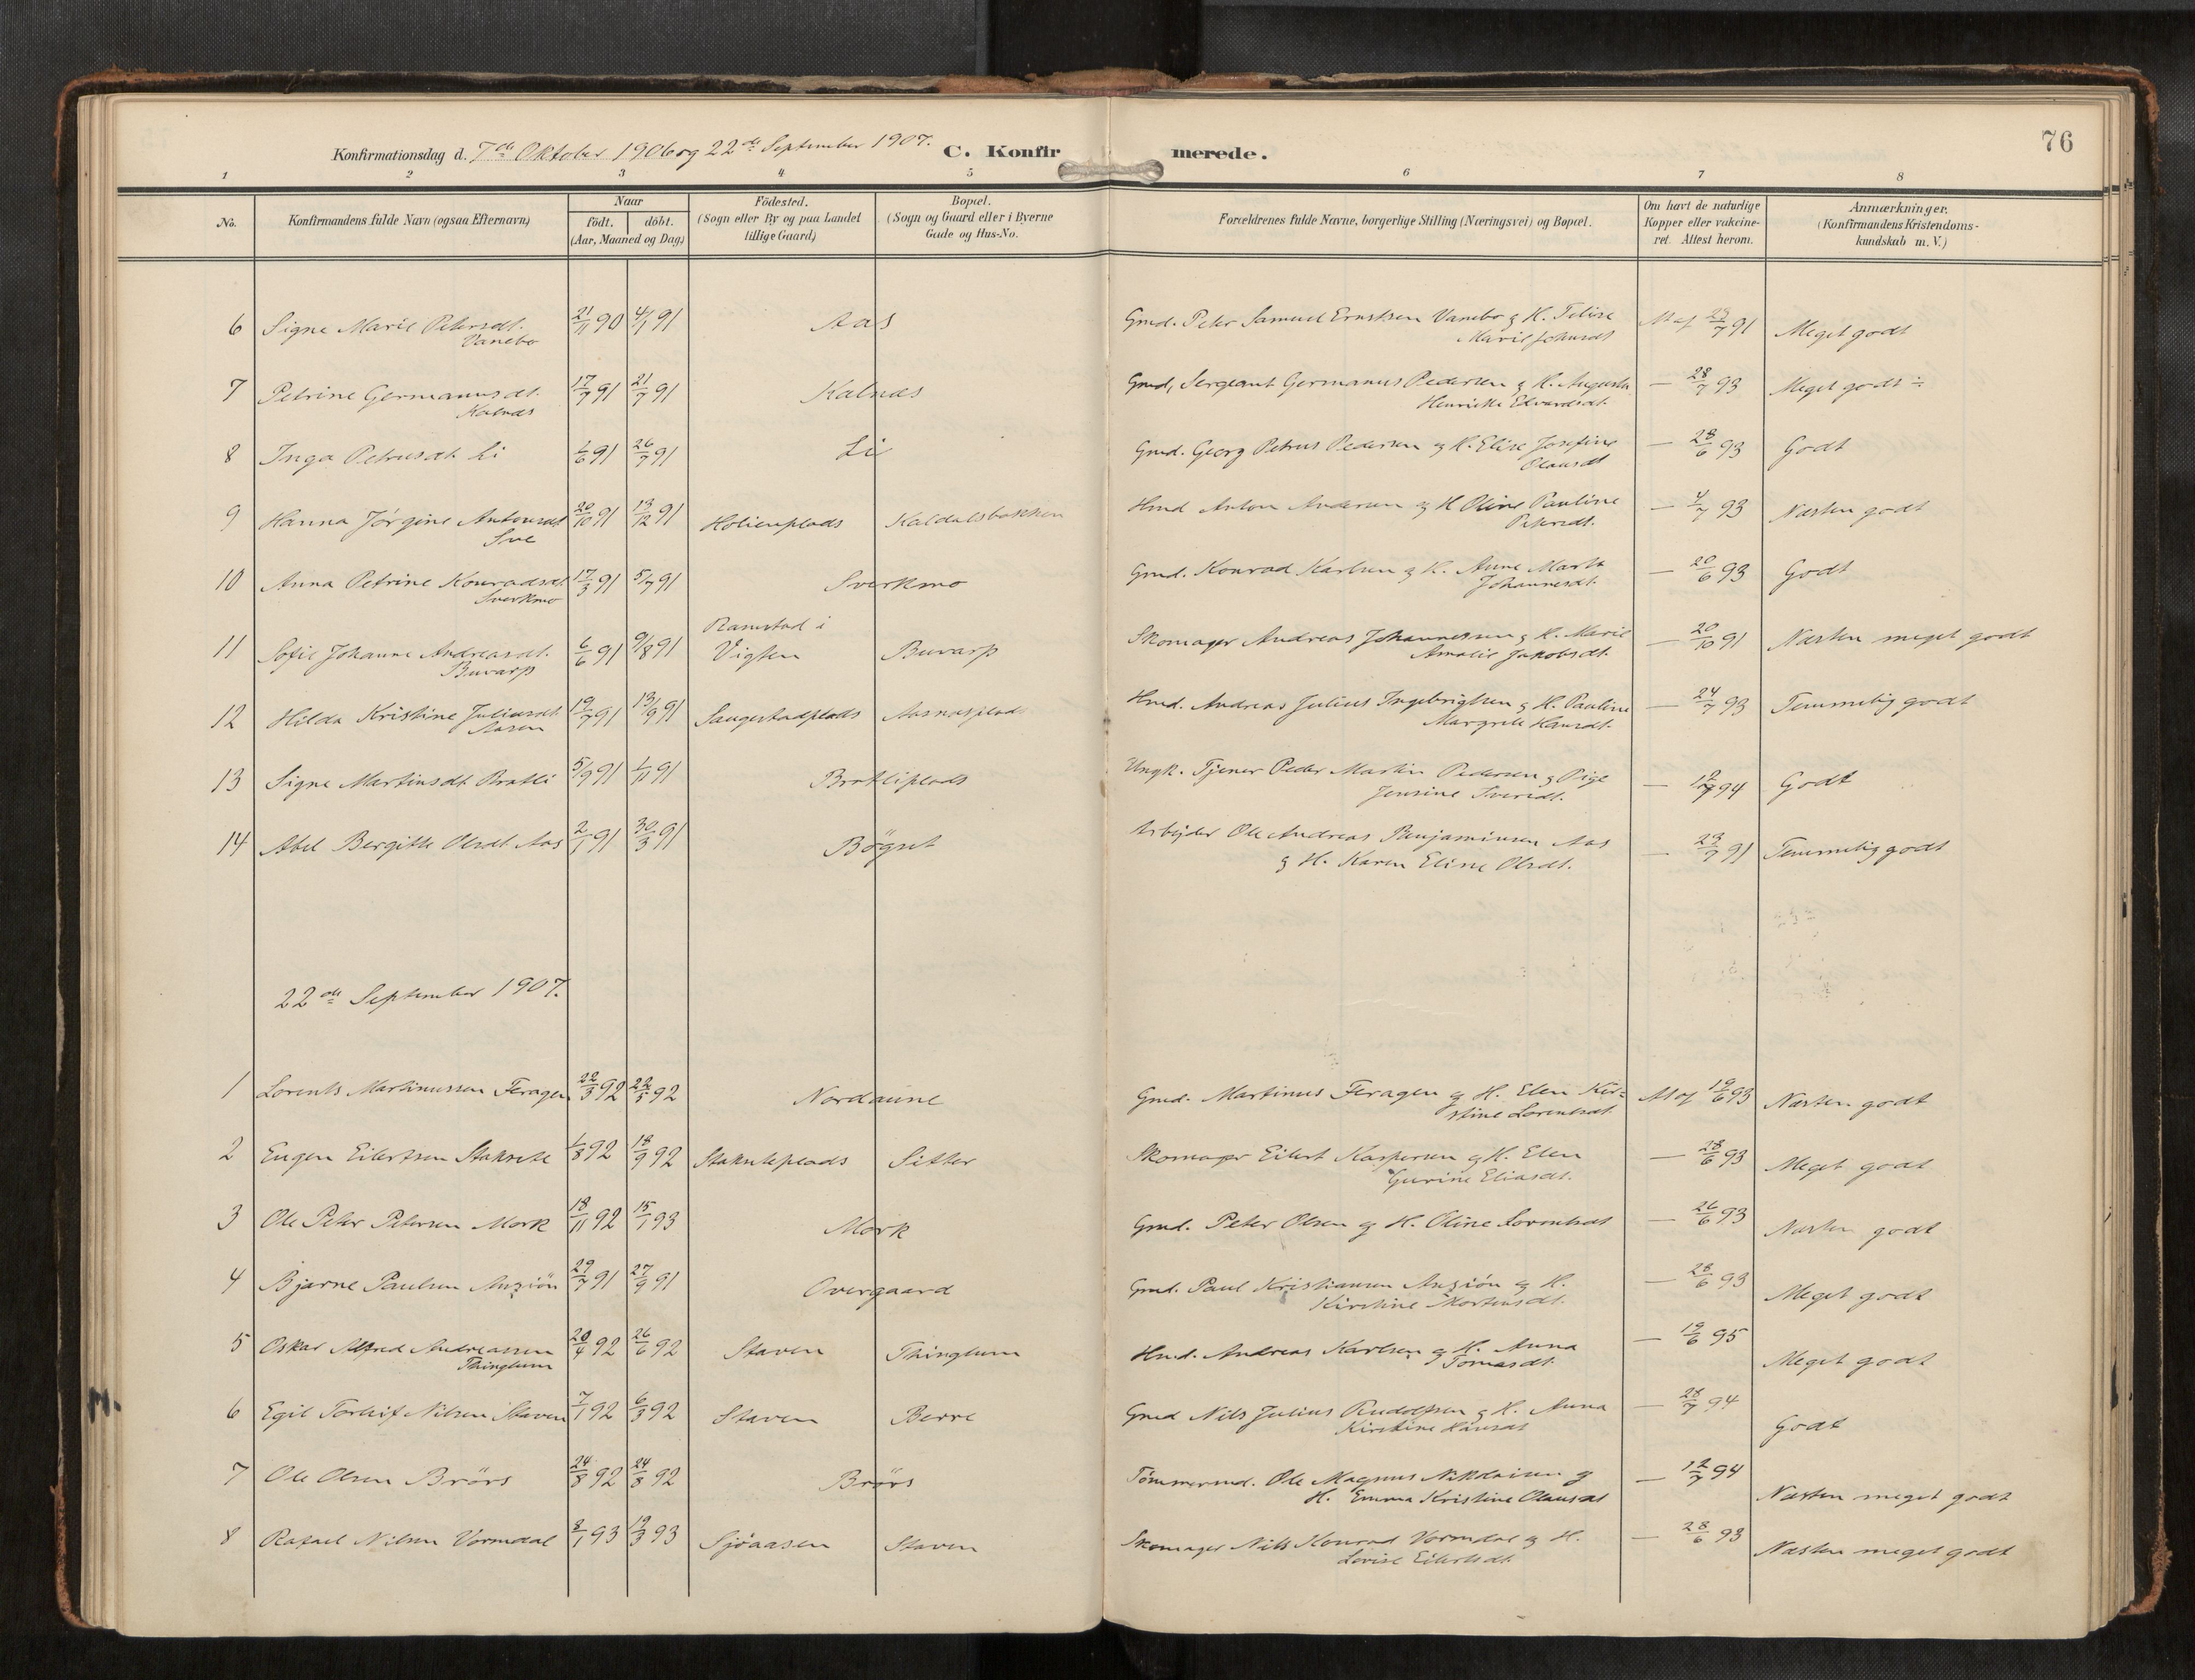 76
Konfirmationsdag d. 7de Oktober 1906 og 22de September 1907. C. Konfirmerede.
1 2 3 4 5 6 7 8
No.
Konfirmandens fulde Navn (ogsaa Efternavn)
Naar
født. døbt.
(Aar, Maaned og Dag)
Fødested.
(Sogn eller By og paa Landet
tillige Gaard)
Bopæl.
(Sogn og Gaard eller i Byerne
Gade og Hus-No.
Forældrenes fulde Navne, borgerlige Stilling (Næringsvei) og Bopæl.
Om havt de naturlige
Kopper eller vakcine-
ret. Attest herom.
Anmærkninger.
(Konfirmandens Kristendoms-
kundskab m. V.)
6 Signe Marie Petersdt. 21/11 90 4/1 91 Aas Gmd. Peter Samuel Ernstsen Vanebo & H. Felise M af 23/7 91 Meget godt
Vanebo Marie Johnsdt
7 Petrine Germanusdt. 17/7 91 21/7 91 Kalnæs Gmd, Sergeant Germanus Pedersen & H. Augusta — 28/7 93 Meget godt ÷
Kalnæs Henrikke Edvardsdt.
8 Inga Petrusdt. Li 1/6 91 26/7 91 Li Gmd. Georg Petrus Pedersen & H. Elise Josefine — 28/6 93 Godt
Olausdt
9 Hanna Jørgine Antonsdt 20/10 91 13/12 91 Holienplads Kaldalsbakken Hmd Anton Andersen & H Oline Pauline — 4/7 93 Næsten godt
Sve Petersdt.
10 Anna Petrine Konradsdt 17/3 91 5/7 91 Sverkmo Gmd. Konrad Karlsen & H. Anne Marta — 20/6 93 Godt
Sverkmo Johannesdt.
Ramstad i
11 Sofie Johanne Andreasdt. 6/6 91 9/8 91 Vigten Buvarp Skomager Andreas Johannessen & H. Marie — 20/10 91 Næsten meget godt
Buvarp Amalie Jakobsdt.
12 Hilda Kristine Juliusdt 19/7 91 13/9 91 Saugestadplads Aasnæsplads Hmd. Andreas Julius Ingebrigtsen & H. Pauline — 24/7 93 Temmelig godt
Aasen Margrete Hansdt.
13 Signe Martinsdt Bratli 5/9 91 1/11 91 Bratliplads Ungk. Tjener Peder Martin Pedersen & Pige — 12/7 94 Godt
Jensine Iversdt.
14 Abel Bergitte Olsdt Aas 2/1 91 30/3 91 Bøgset Arbeider Ole Andreas Benjaminsen Aas — 23/7 91 Temmelig godt
& H. Karen Eline Olsdt.
22de September 1907.
1 Lorents Martinussen Feragen 22/3 92 22/5 92 Nordaune Gmd. Martinus Feragen & H. Elen Kir= M af 19/6 93 Næsten godt
stine Lorentsdt.
2 Eugen Eilertsen Staksete 1/8 92 18/9 92 Staksteplads Sitter Skomager Eilert Kaspersen & H. Elen — 28/6 93 Meget godt
Gurine Eliasdt.
3 Ole Peter Petersen Mork 18/11 92 15/1 93 Mork Gmd. Peter Olsen & H. Oline Lorentsdt — 26/6 93 Næsten godt
4 Bjarne Paulsen Auziøn 29/7 91 27/9 91 Overgaard Gmd. Paul Kristiansen Auziøn & H. — 28/6 93 Meget godt
Kirstine Mortensdt.
5 Oskar Alfred Andreassen 20/4 92 26/6 92 Staven Thinglum Hmd. Andreas Karlsen & H. Anna — 19/6 95 Meget godt
Thinglum Tomasdt.
6 Egil Torleif Nilsen Staven 7/1 92 6/3 92 Staven Berre Gmd Nils Julius Rudolfsen & H. Anna — 28/7 94 Godt
Kirstine Hansdt
7 Ole Olsen Brørs 24/8 92 24/8 92 Brørs Tømmermd. Ole Magnus Nikolaisen & — 12/7 94 Næsten meget godt
H. Emma Kristine Olausdt
8 Rafael Nilsen Vormdal 8/1 93 19/3 93 Sjøaasen Staven Skomager Nils Konrad Vormdal & H. — 28/6 93 Næsten meget godt
Lovise Eilertsdt.